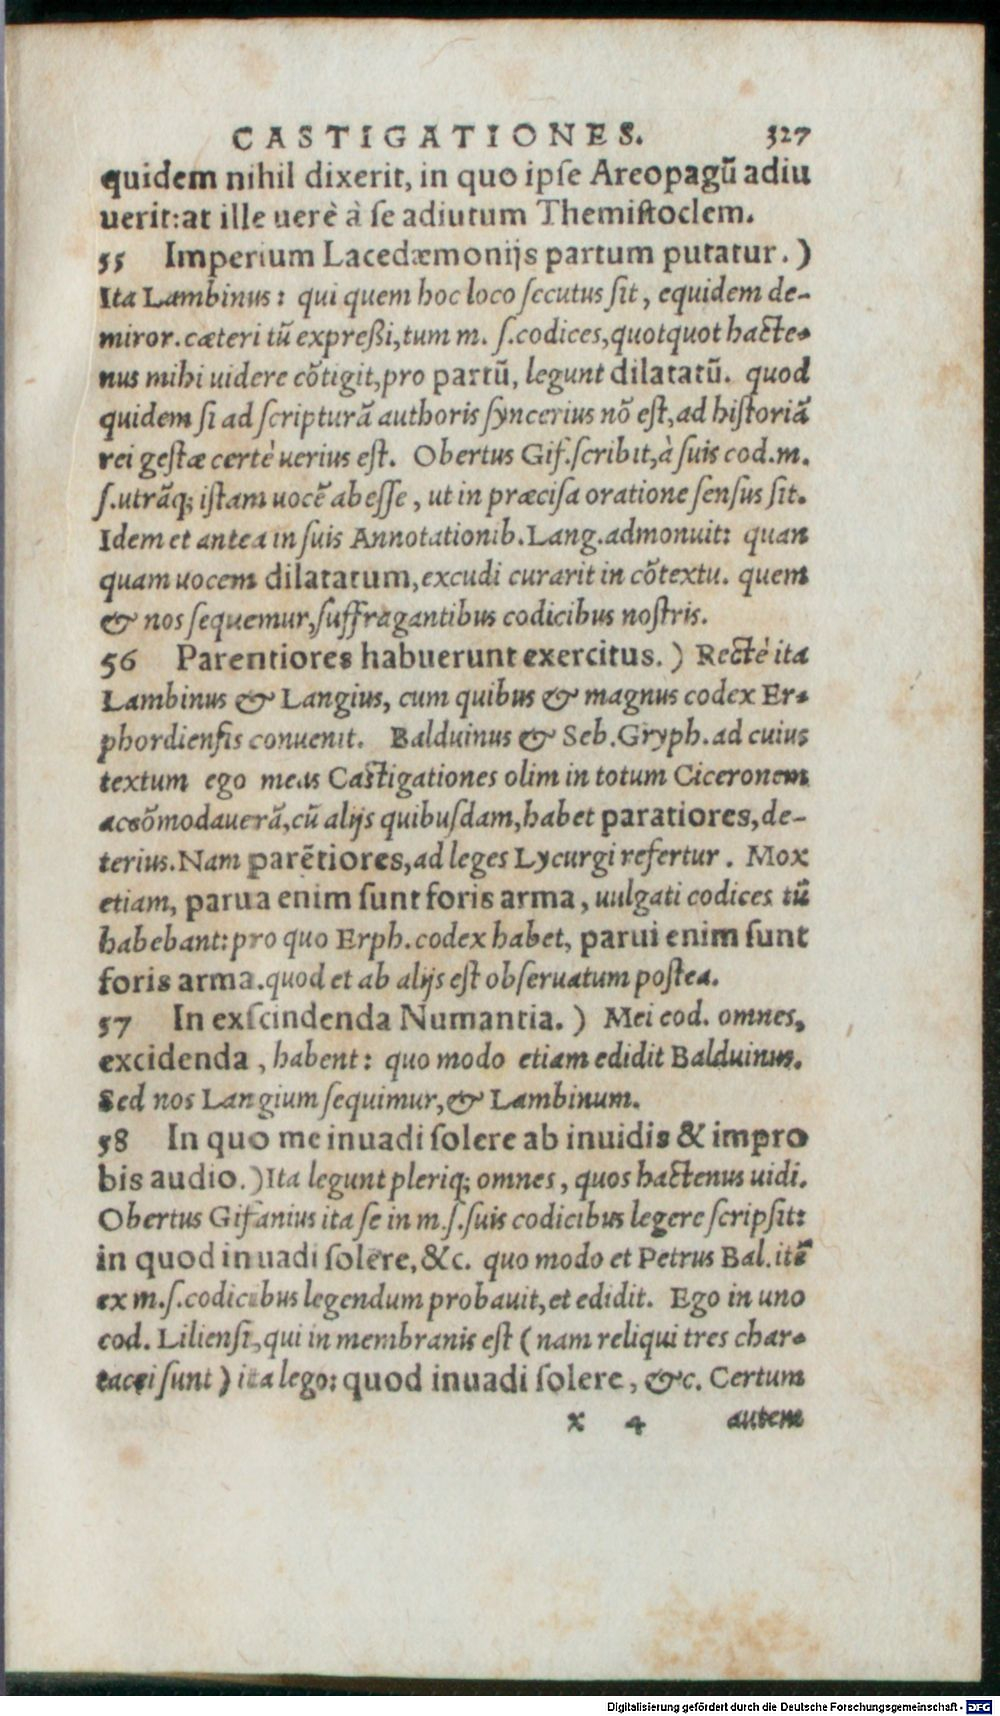 CASTIGATIONES. 327
quidem nihil dixerit, in quo ipſe Areopagũ adiu
uerit: at ille uerè à ſe adiutum Themiſtoclem.
55 Imperium Lacedæmonijs partum putatur. )
Ita Lambinus: qui quem hoc loco ſecutus ſit, equidem de-
miror. cæteri tũ expreßi, tum m. ſ. codices, quotquot hacte-
nus mihi uidere cõtigit, pro partũ, legunt dilatatũ. quod
quidem ſi ad ſcripturã authoris ſyncerius nõ eſt, ad hiſtoriã
rei geſtæ certè uerius eſt. Obertus Gif. ſcribit, à ſuis cod. m.
ſ. utrãq; iſtam uocẽ abeſſe, ut in præciſa oratione ſenſus ſit.
Idem et antea in ſuis Annotationib. Lang. admonuit: quan
quam uocem dilatatum, excudi curarit in cõtextu. quem
& nos ſequemur, ſuffragantibus codicibus noſtris.
56 Parentiores habuerunt exercitus. ) Rectè ita
Lambinus & Langius, cum quibus & magnus codex Er-
phordienſis conuenit. Balduinus & Seb. Gryph. ad cuius
textum ego meas Caſtigationes olim in totum Ciceronem
accõmodauerã, cũ alijs quibuſdam, habet paratiores, de-
terius. Nam parẽtiores, ad leges Lycurgi refertur. Mox
etiam, parua enim ſunt foris arma, uulgati codices tũ
habebant: pro quo Erph. codex habet, parui enim ſunt
foris arma. quod et ab alijs eſt obſeruatum poſtea.
57 In exſcindenda Numantia. ) Mei cod. omnes,
excidenda, habent: quo modo etiam edidit Balduinus.
Sed nos Langium ſequimur, & Lambinum.
58 In quo me inuadi ſolere ab inuidis & impro
bis audio. ) Ita legunt pleriq; omnes, quos hactenus uidi.
Obertus Gifanius ita ſe in m. ſ. ſuis codicibus legere ſcripſit:
in quod inuadi ſolere, &c. quo modo et Petrus Bal. itẽ
ex m. ſ. codicibus legendum probauit, et edidit. Ego in uno
cod. Lilienſi, qui in membranis eſt (nam reliqui tres char-
tacei ſunt) ita lego: quod inuadi ſolere, &c. Certum
x 4 autem
Digitalisierung gefördert durch die Deutsche Forschungsgemeinschaft - DFG